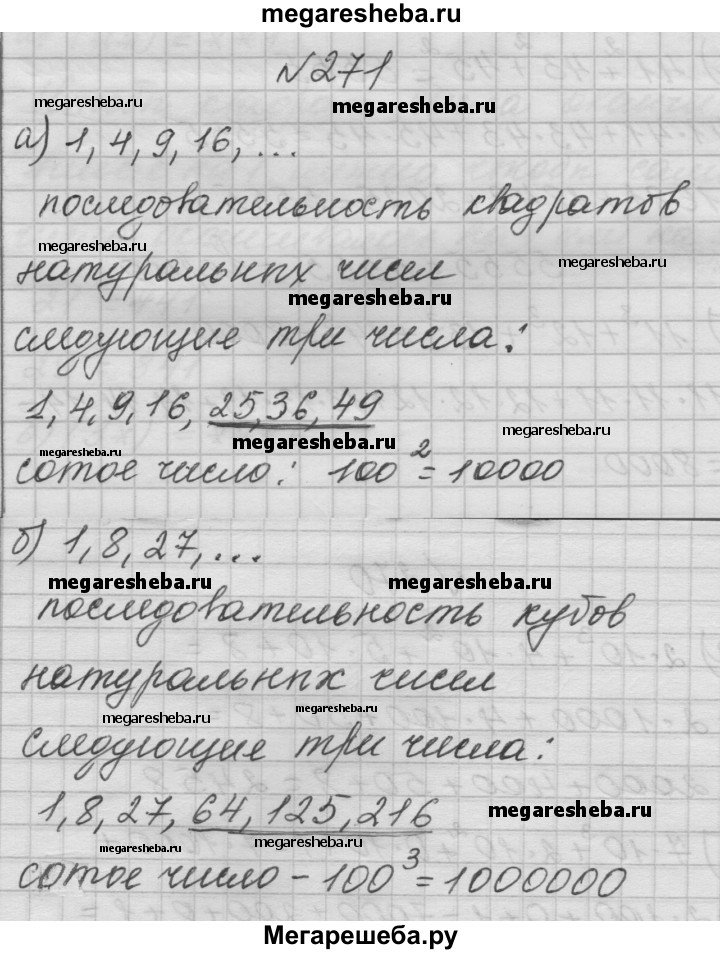 megaresheba.ru
№271
megaresheba.ru
megaresheba.ru
а) 1, 4, 9, 16, ...
последовательность квадратов
megaresheba.ru
megaresheba.ru
натуральных чисел
megaresheba.ru
следующие три числа:
1, 4, 9, 16, 25, 36, 49
megaresheba.ru
megaresheba.ru
megaresheba.ru
сотое число: 100² = 10000
б) 1, 8, 27, ...
megaresheba.ru
megaresheba.ru
последовательность кубов
натуральных чисел
megaresheba.ru
megaresheba.ru
следующие три числа:
1, 8, 27, 64, 125, 216
megaresheba.ru
megaresheba.ru
megaresheba.ru
сотое число – 100³ = 1000000
Мегарешеба.ру